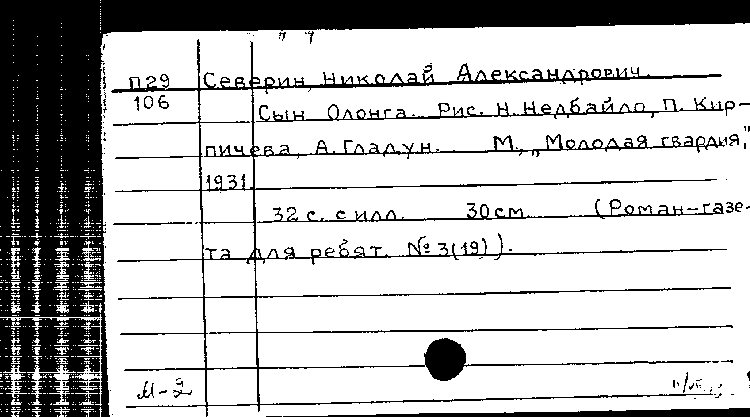 П29 Северин, Николай Александрович.
106 Сын Олонга. Рис. Н. Недбайло, П. Кир-
пичева, А. Гладун. М., „Молодая гвардия,"
1931.
32 с. с илл. 30 см (Роман-газе-
та для ребят. № 3(19)).
М-2